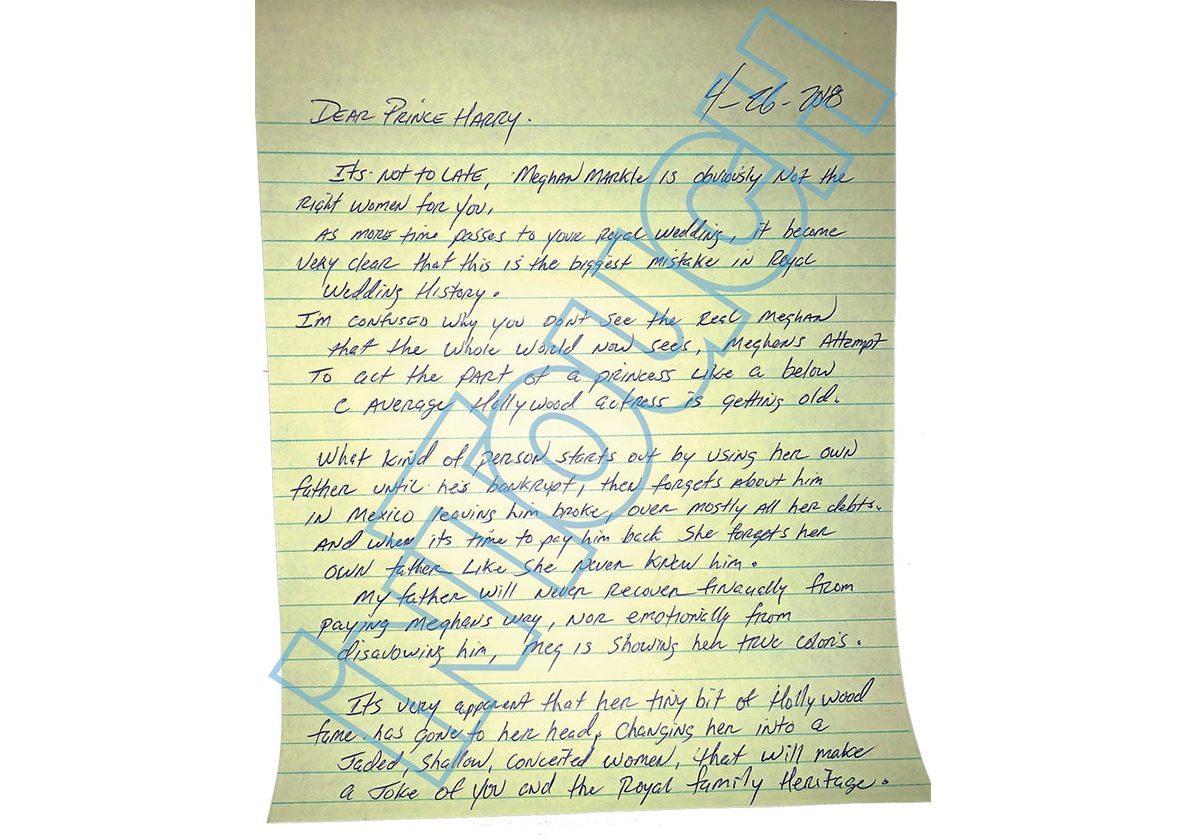 4-26-2018
DEAR PRINCE HARRY.
Its not to LATE, Meghan Markle is obviously Not the
Right women for you,
As more time passes to your Royal wedding, it become
Very clear that this is the biggest mistake in Royal
Wedding History.
I'm confused why you don't see the Real Meghan
that the whole world now sees, Meghan's Attempt
To act the part of a princess like a below
C Average Hollywood actress is getting old.
What kind of person starts out by using her own
father until he's bankrupt, then forgets about him
in Mexico leaving him broke, over mostly all her debts.
And when its time to pay him back she forgets her
own father like she never knew him.
My father will never recover finacially from
paying Meghan's way, nor emotionally from
disavowing him, Meg is showing her true color's.
It's very apparent that her tiny bit of Hollywood
fame has gone to her head, Changing her into a
Jaded, Shallow, conceited women, that will make
a Joke of you and the Royal family Heritage.
INTOUCH